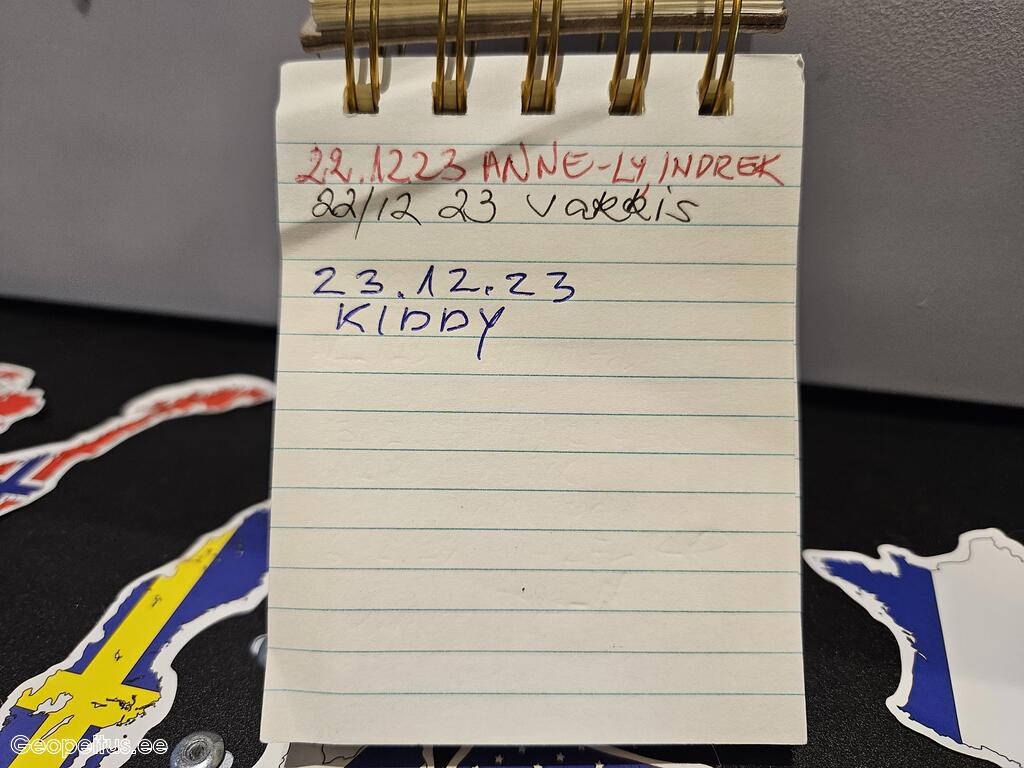 22.12.23 ANNE-LY INDREK
22/12 23 vakkis
23.12.23
KIDDY
Geopeitus.ee